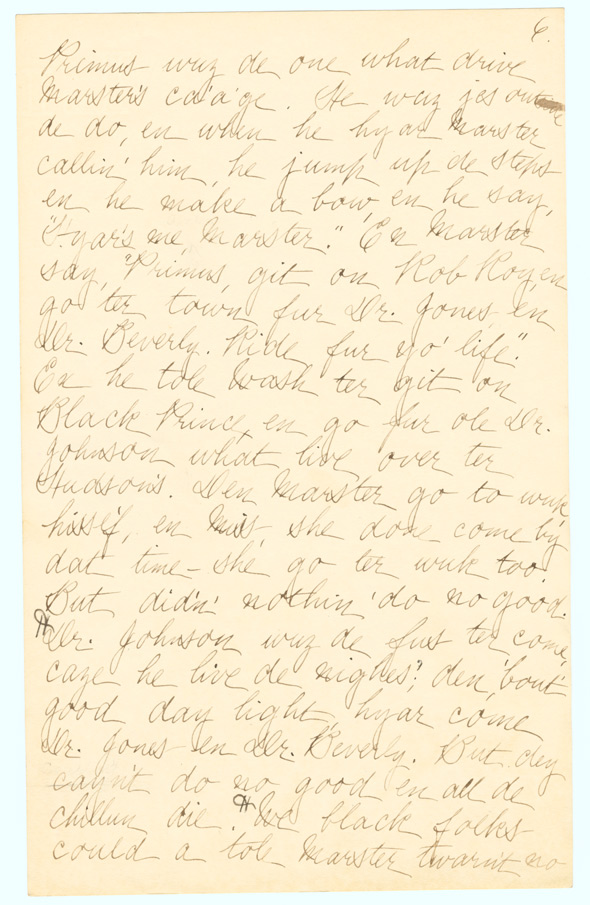 6.
Primus wuz de one what drive
Marster's ca'a'ge. He wuz jes outside
de do, en when he hyar Marster
callin' him, he jump up de steps
en he make a bow, en he say,
"Hyar's me, Marster." En Marster
say, "Primus, git on Rob Roy, en
go ter town fur Dr. Jones, en
Dr. Beverly. Ride fur yo' life".
En he tole Wash ter git on
Black Prince, en go fur ole Dr.
Johnson what live over ter
Hudson's. Den Marster go to wuk
hisse'f, en Mis', she done come by
dat time – she go ter wuk too.
But didn' nothin' do no good.
Dr. Johnson wuz de fus' ter come,
caze he live de nighes', den, 'bout
good day light, hyar come
Dr. Jones en Dr. Beverly. But dey
cayn't do no good en all de
chillun die. We black folks
could a tole Marster twarn't no